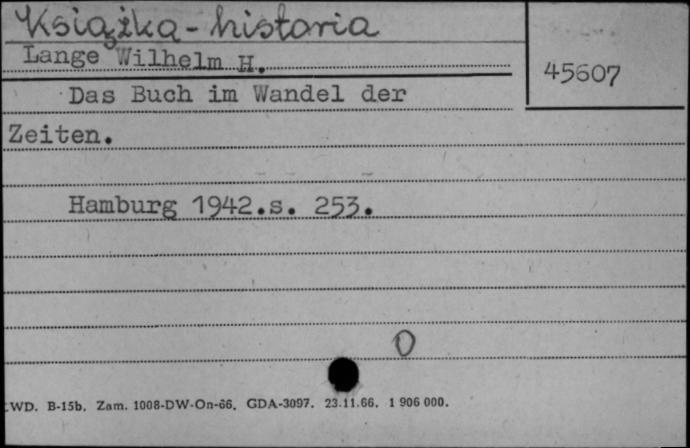 Książka - historia
Lange Wilhelm H.
45607
Das Buch im Wandel der
Zeiten.
Hamburg 1942.s. 253.
0
WD. B-15b. Zam. 1008-DW-On-66. GDA-3097. 23.11.66. 1 906 000.